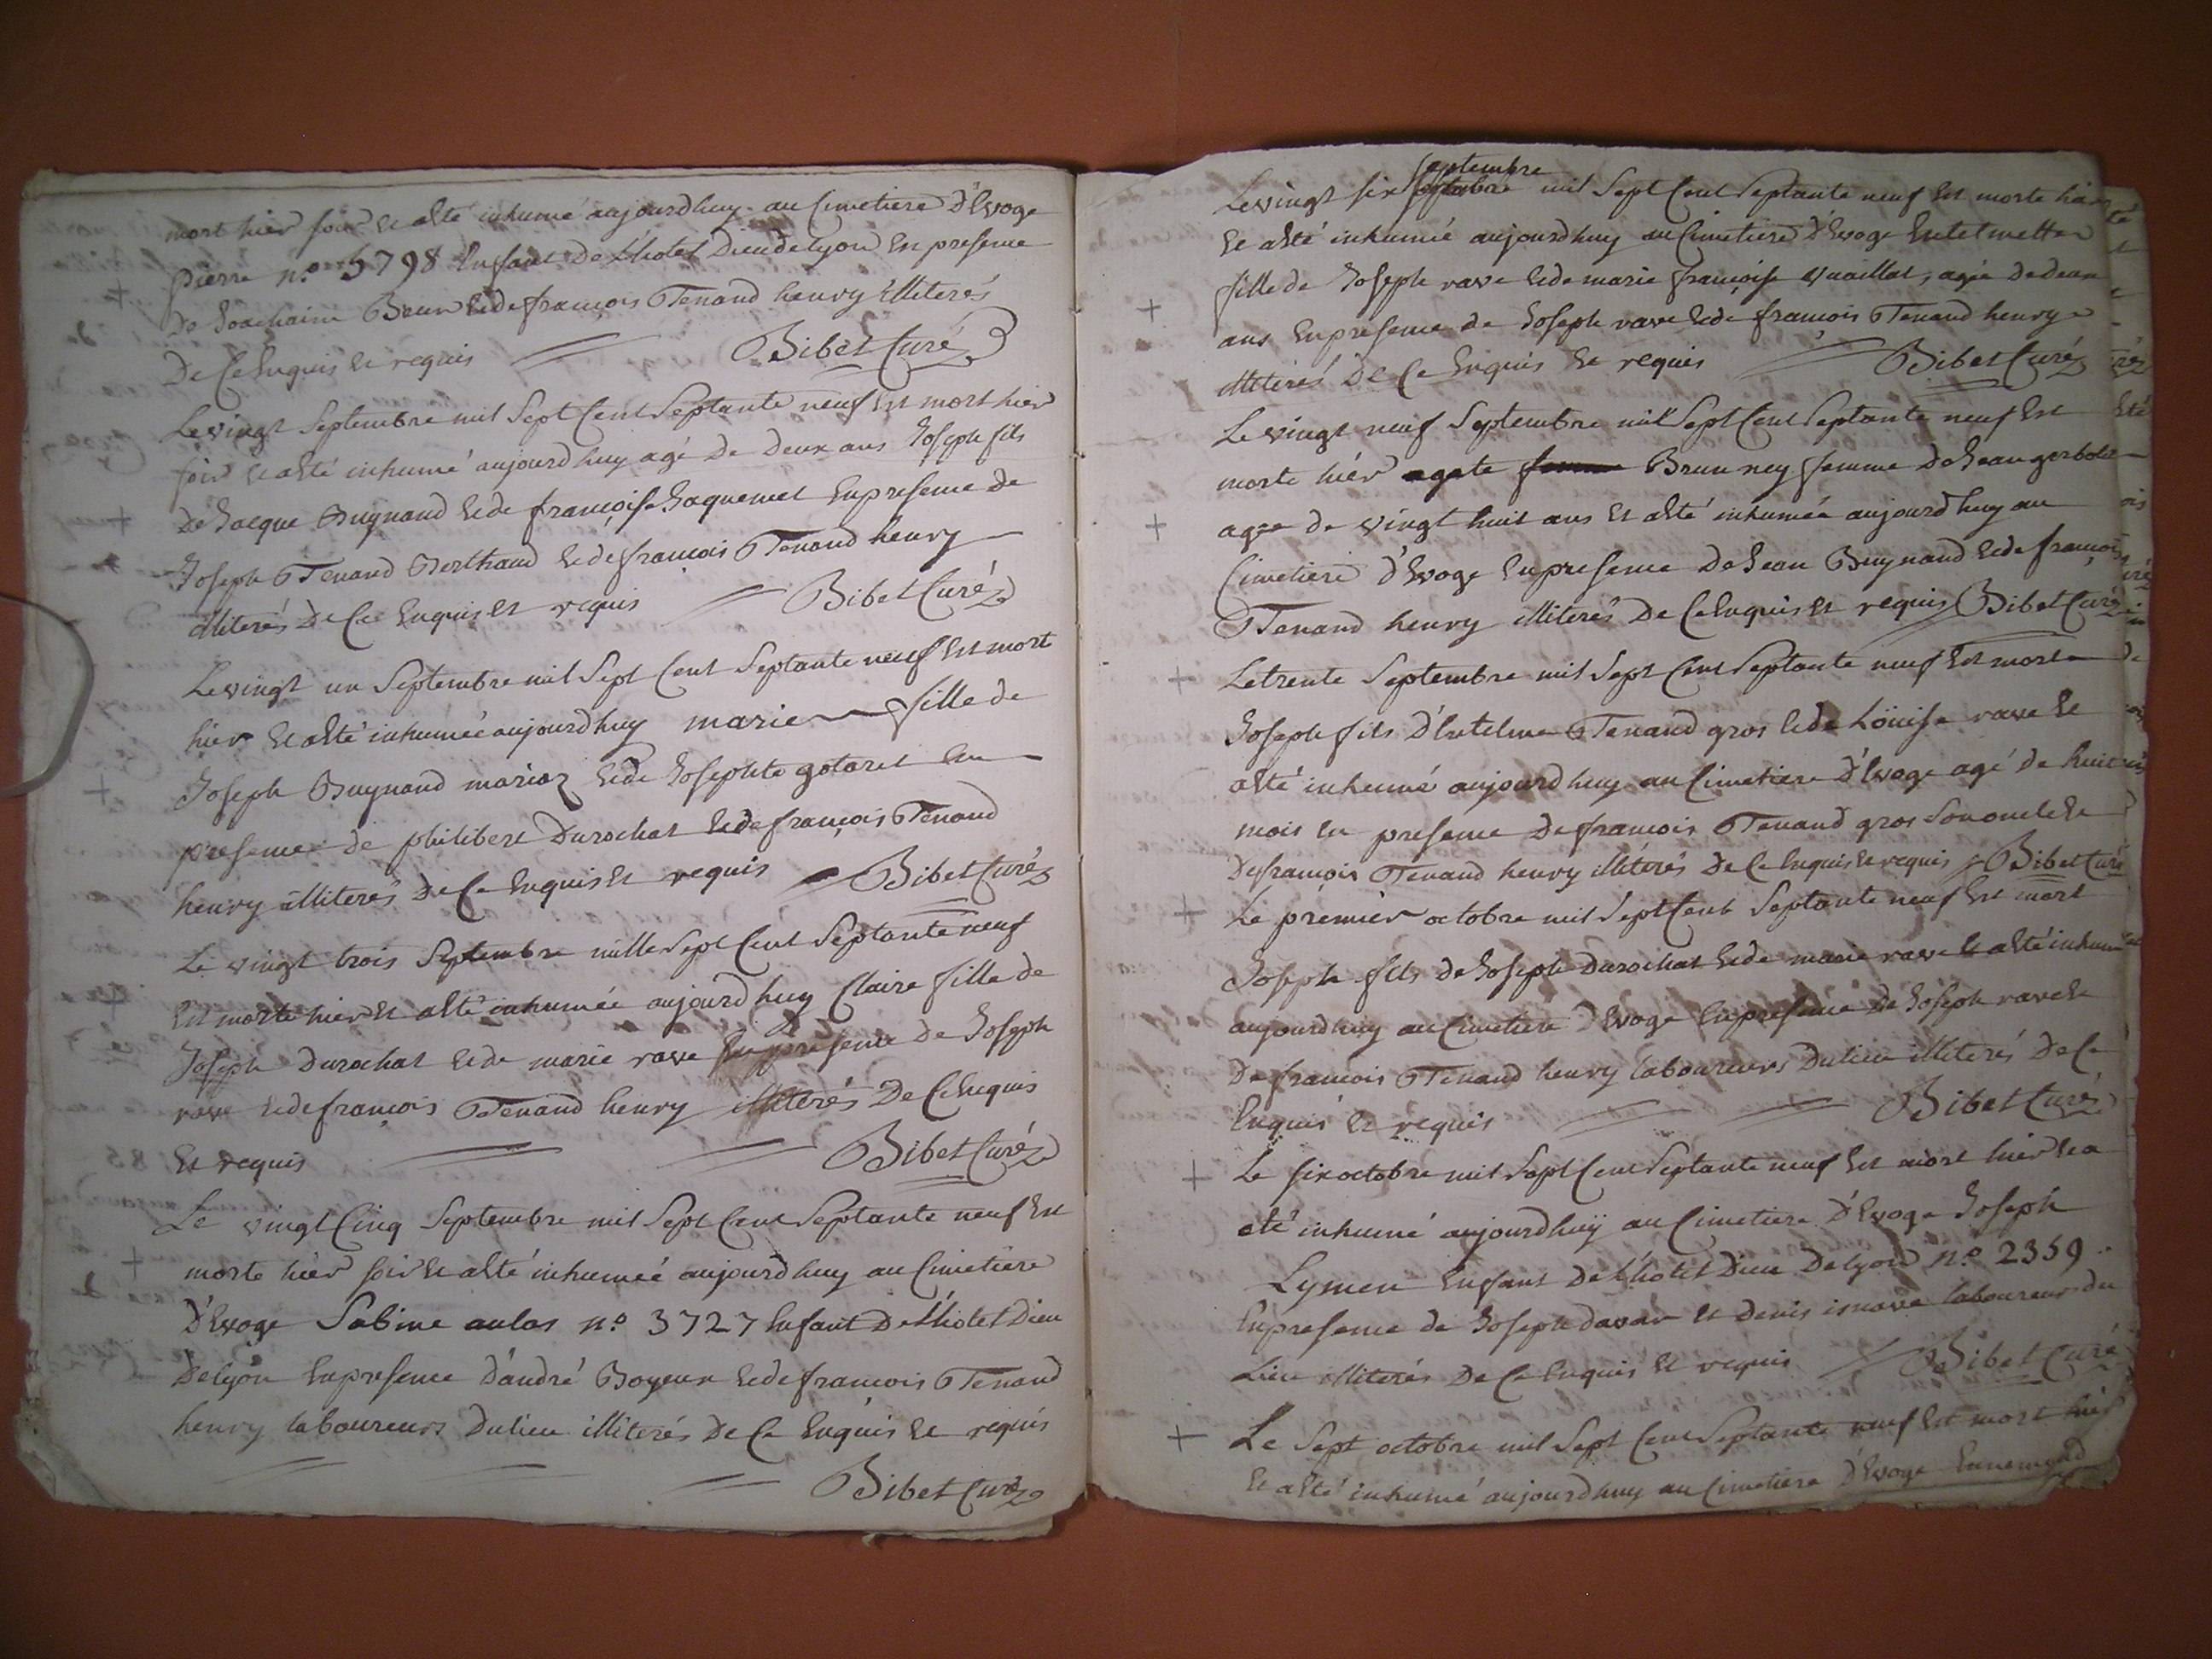 mort hier soir et a Eté inhumé aujourdhuy au Cimetiere D'Evoge
pierre n.o 5798 Enfant De L'hotel Dieu de lyon En presence
De Joachaim Brun Et de francois Tenand henry illiterés
De Ce Enquis et requis Bibet Curé
Le vingt Septembre mil Sept Cent Septante neuf Est mort hier
soir et a Eté inhumé aujourd huy agé De Deux ans Joseph fils
De Jacque Buynand Et de françoise Jaquemet En presence de
Joseph Tenand Berthand Et de francois Tenand henry
illiterés De Ce Enquis et requis Bibet Curé
Le vingt un Septembre mil Sept Cent Septante neuf Est mort
hier et a Eté inhumée aujourdhuy marie fille de
Joseph Buynand marioz Et de Josephte gotaret En
presence de philibert Durochat Et de françois Tenand
henry illiterés De Ce Enquis Et requis Bibet Curé
Le vingt trois Septembre mille Sept Cent Septante neuf
Est morte hier Et a Eté inhumée aujourd huy Claire fille de
Joseph Durochat Et de marie rave En presence de Joseph
rave Et de françois Tenand henry illiterés De Ce Enquis
Et requis Bibet Curé
Le vingt Cinq Septembre mil Sept Cent Septante neuf Est
morte hier soir Et a Eté inhumeé aujourd huy au Cimetiere
D'Evoge Sabine aulas n.o 3727 Enfant De L'hotel Dieu
De lyon En presence D'andré Boyeux Et de francois Tenand
henry laboureurs Du lieu illiterés De Ce Enquis Et requis
Bibet Curé
Septembre
Le vingt six octobre mil Sept Cent Septante neuf Est morte hier
Et a Eté inhumée aujourd huy au Cimetiere D'Evoge
fille de Joseph rave Et de marie françoise vuaillat, agée De deux
ans En presence de Joseph rave Et de francois Tenand henry
illiterés De Ce Enquis Et requis Bibet Curé
Le vingt neuf Septembre mil Sept Cent Septante neuf Est
morte hier agate femme Brunney femme De Jean
agée de vingt huit ans Et a Eté inhumée aujourd huy au
Cimetiere D'Evoge En presence De Jean Buynand Et de françois
Tenand henry illiterés De Ce Enquis Et requis Bibet Curé
Le trente Septembre mil Sept Cent Septante neuf Est mort
Joseph fils D'Entelme Tenand gros Et de Loüise rave Et
a Eté inhumé aujourd huy au Cimetiere D'Evoge agé de huit
mois En presence De francois Tenand gros Son oncle Et
De francois Tenand henry illiterés De Ce Enquis Et requis Bibet Curé
Le premier octobre mil Sept Cent Septante neuf Est mort
Joseph fils de Joseph Durochat Et de marie rave Et a Eté inhumé
aujourdhuy au Cimetiere D'Evoge En presence De Joseph rave Et
De francois Tenand henry laboureurs Du lieu illiterés De Ce
Enquis Et requis Bibet Curé
Le six octobre mil Sept Cent Septante neuf Est mort hier Et a
eté inhumé aujourd huy au Cimetiere D'Evoge Joseph
Lymen Enfant De L'hotel Dieu De lyon N.o 2359
En presence de Joseph davar Et Denis laboureurs du
Lieu illiterés De Ce Enquis Et requis Bibet Curé
Le Sept octobre mil Sept Cent Septante neuf Est mort hier
Et a Eté inhumé aujourdhuy au Cimetiere D'Evoge Ennemond